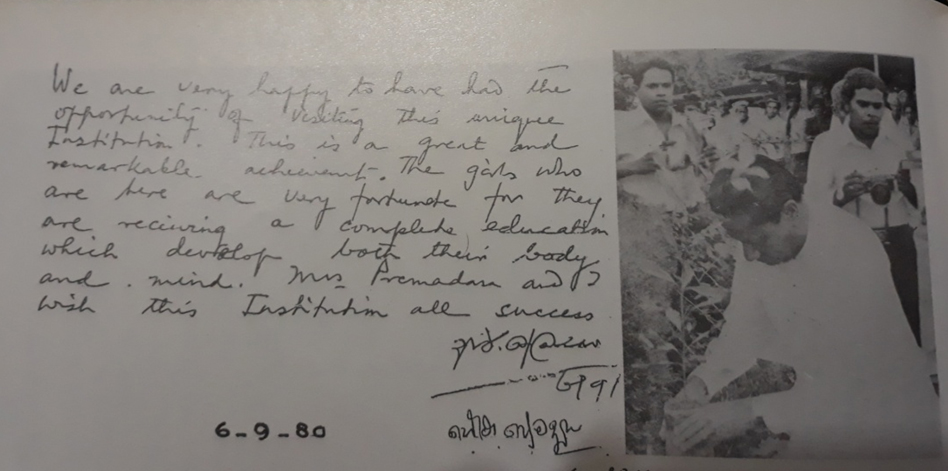 We are very happy to have had the
opportunity of visiting this unique
Institution. This is a great and
remarkable achievent. The girls who
are here are very fortunate for they
are reciving a complete education
which develop both their body
and mind. Mrs Premadasa and I
wish this Institution all success
6-9-80